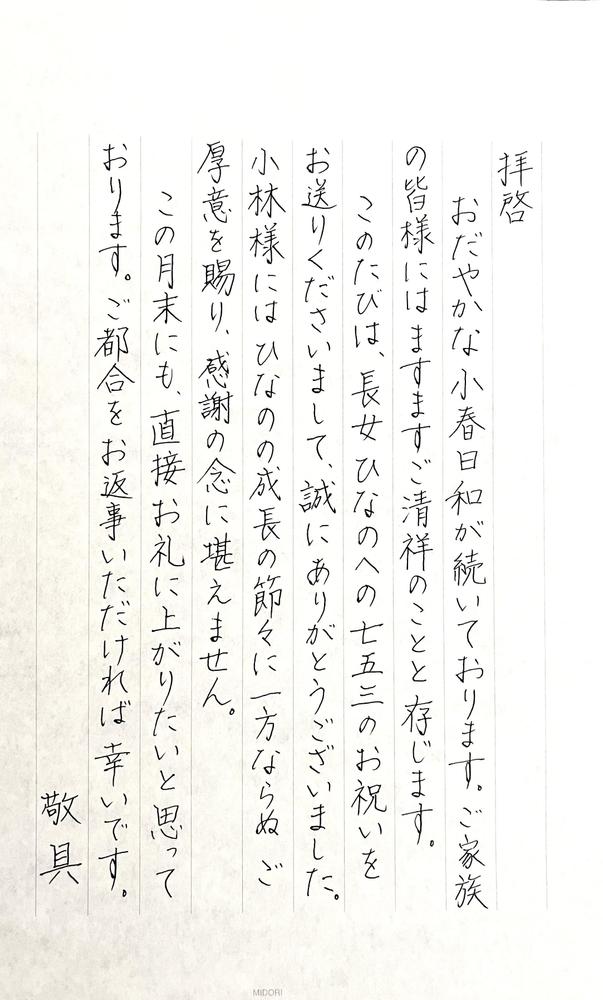 拝啓
おだやかな小春日和が続いております。ご家族
の皆様にはますますご清祥のことと存じます。
このたびは、長女ひなのへの七五三のお祝いを
お送りくださいまして、誠にありがとうございました。
小林様にはひなのの成長の節々に一方ならぬご
厚意を賜り、感謝の念に堪えません。
この月末にも、直接お礼に上がりたいと思って
おります。ご都合をお返事いただければ幸いです。
敬具
MIDORI